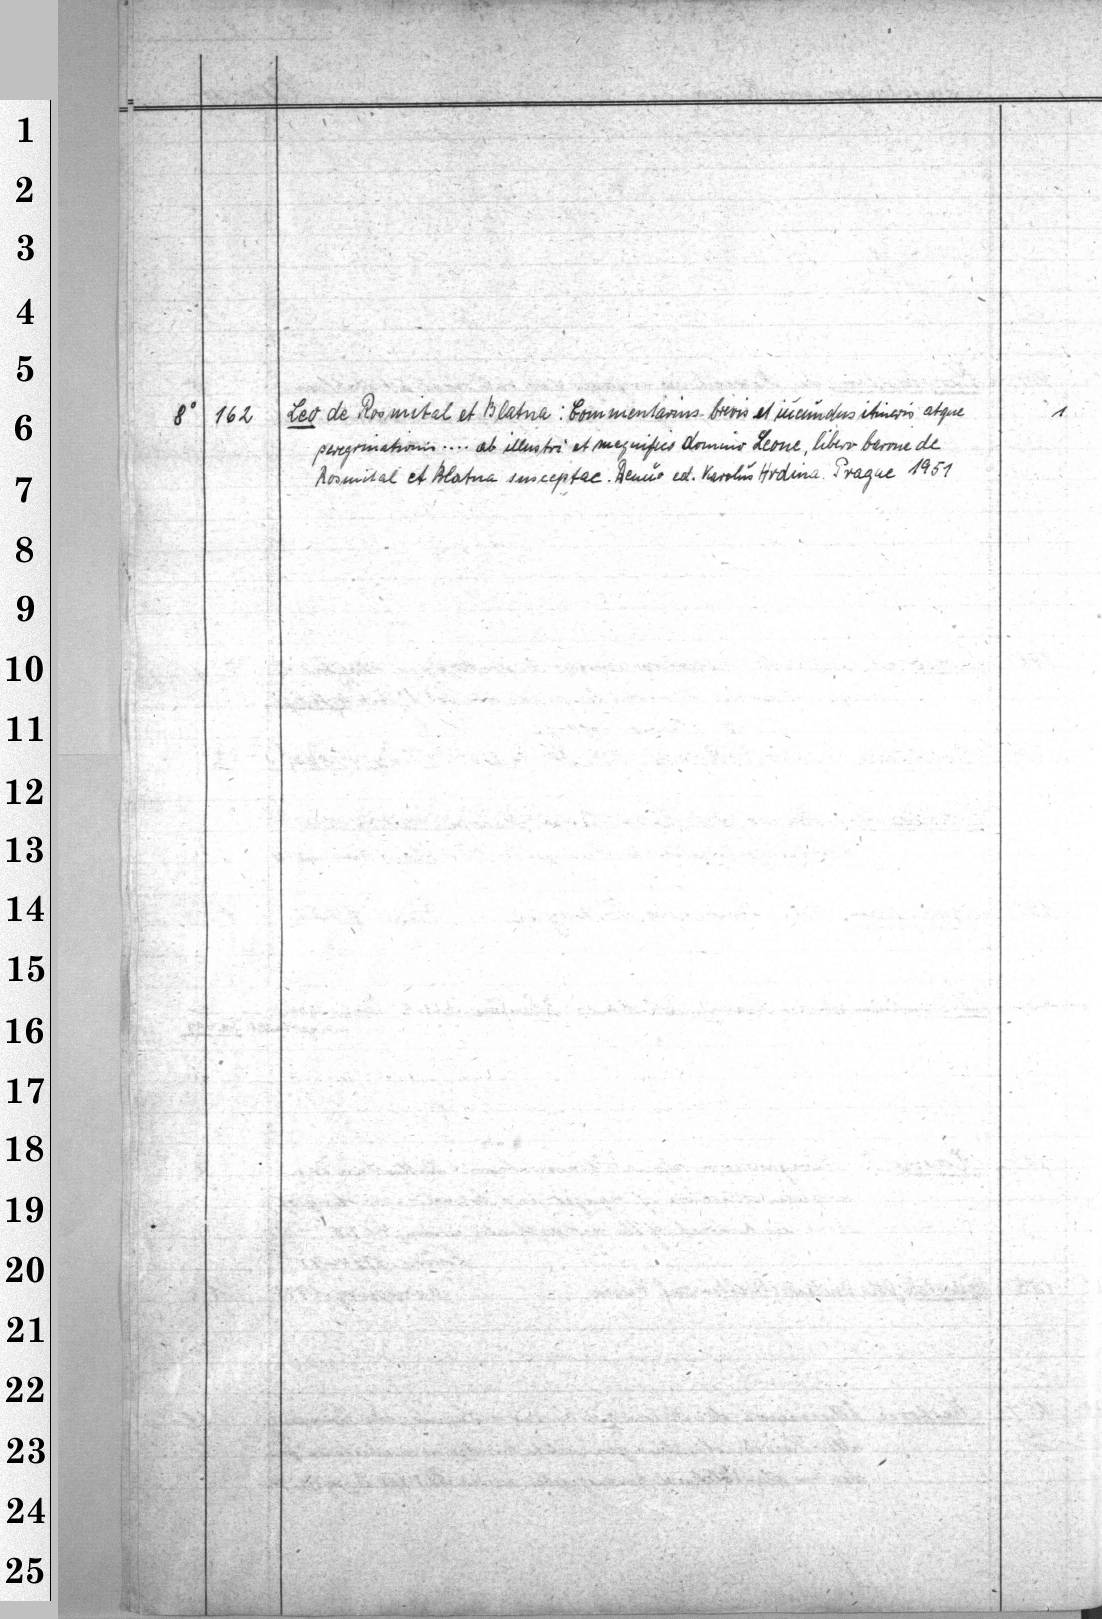 1
2
3
4
5
6
7
8
9
10
11
12
13
14
15
16
17
18
19
20
21
22
23
24
25
8° 162 Leo de Rosmital et Blatna : Commentarius brevis et iucundus itineris atque 1
peregrinationis .... ab illustri et magnifico domino Leone, libero barone de
Rosmital et Blatna susceptae. Denuo ed. Karolus Hrdina. Prague 1951